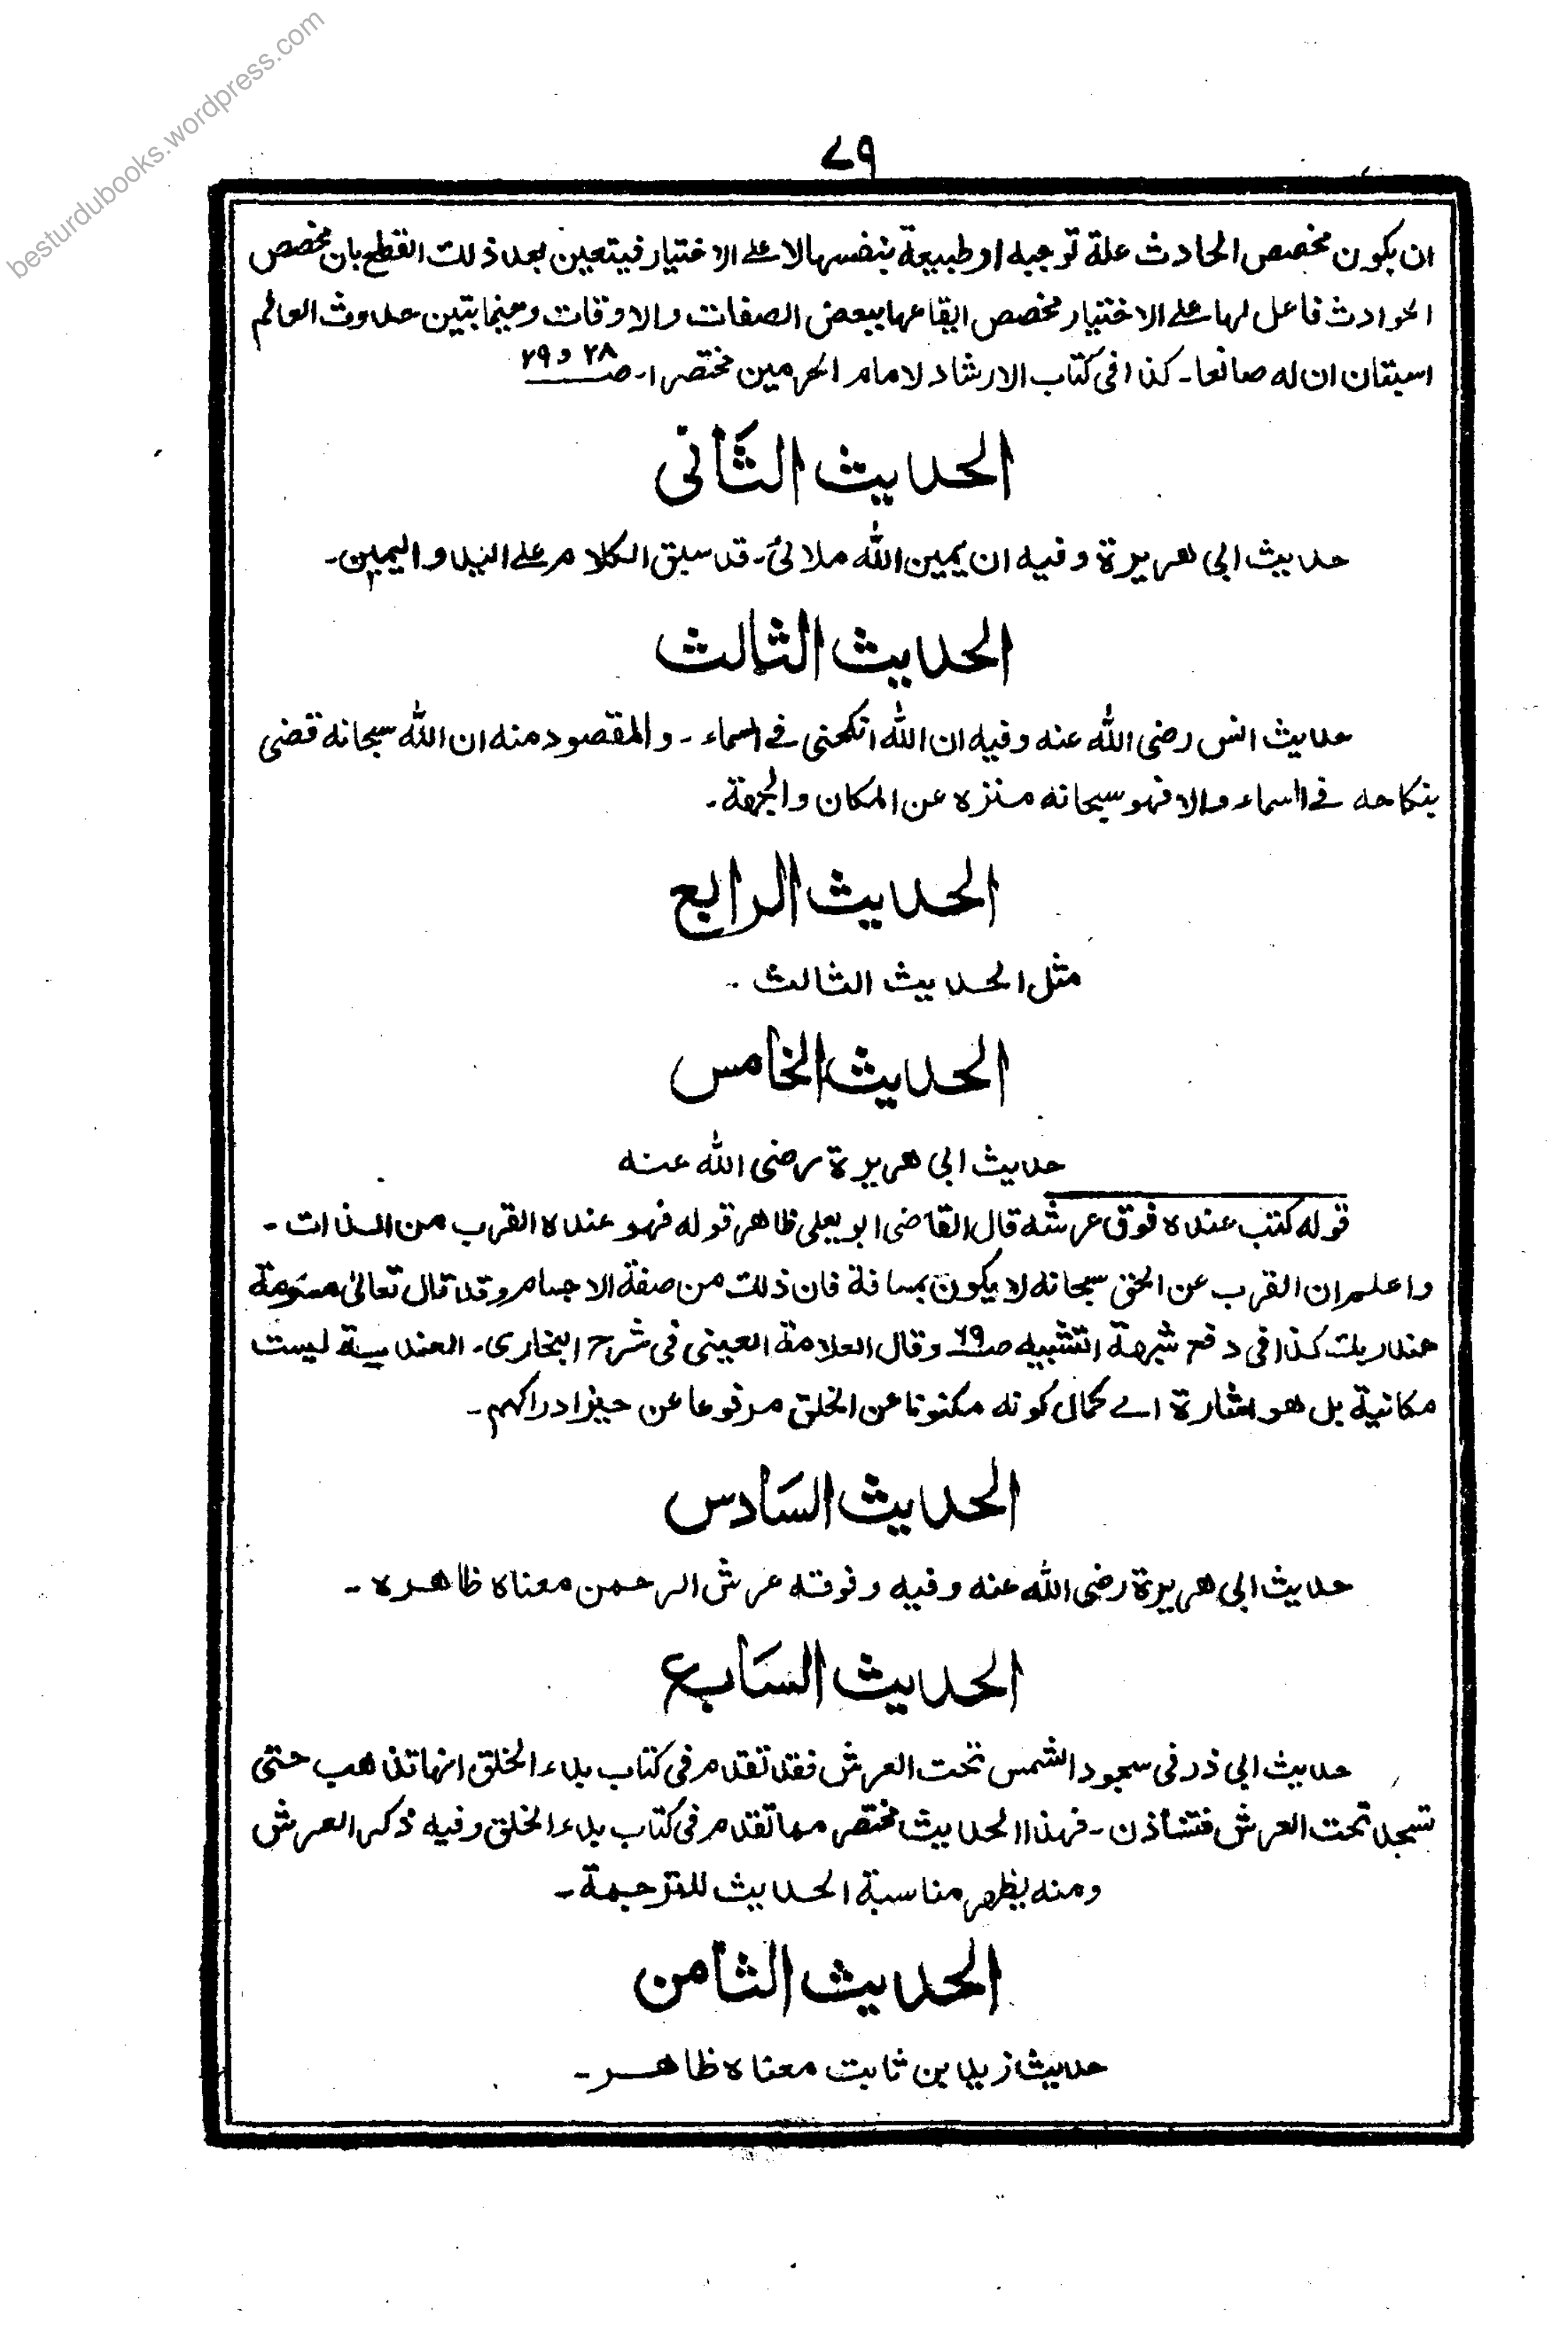 besturdubooks.wordpress.com
٧٩
ان يكون مخصص الحادث علة توجبه او طبيعة بنفسها لا على الاختيار فيتعين بعد ذلك القطع بان مخصص
الحوادث فاعل لها على الاختيار مخصص ايقاعها ببعض الصفات والاوقات وحينما يتبين حدوث العالم
استقان ان له صانعا ـ كذا فى كتاب الارشاد لامام الحرمين مختصرا ـ صـ ٢٨ و ٢٩
الحديث الثَانى
حديث ابى هريرة وفيه ان يمين الله ملائ ـ قد سبق الكلام على اليد واليمين ـ
الحديث الثالث
حديث انس رضى الله عنه وفيه ان الله انكحنى فى السماء ـ والمقصود منه ان الله سبحانه قضى
بنكاحه فى السماء والا فهو سبحانه منزه عن المكان والجهة ـ
الحديث الرابع
مثل الحديث الثالث ـ
الحديث الخامس
حديث ابى هريرة رضى الله عنه
قوله كتب عنده فوق عرشه قال القاضى ابو يعلى ظاهر قوله فهو عنده القرب من الذات ـ
واعلم ان القرب عن الحق سبحانه لا يكون بمسافة فان ذلك من صفة الاجسام وقد قال تعالىٰ مسومة
عند ربك كذا فى دفع شبهة التشبيه صـ ٦٩ وقال العلامة العينى فى شرح البخارى ـ العندية ليست
مكانية بل هو اشارة الى كمال كونه مكنونا عن الخلق مرفوعا عن حيز ادراكهم ـ
الحديث السَادس
حديث ابى هريرة رضى الله عنه وفيه وفوقه عرش الرحمن معناه ظاهره ـ
الحديث السَابع
حديث ابى ذر فى سجود الشمس تحت العرش فقد تقدم فى كتاب بدء الخلق انها تذهب حتى
تسجد تحت العرش فتستأذن ـ فهذا الحديث مختصر مما تقدم فى كتاب بدء الخلق وفيه ذكر العرش
ومنه يظهر مناسبة الحديث للترجمة ـ
الحديث الثامن
حديث زيد بن ثابت معناه ظاهر ـ